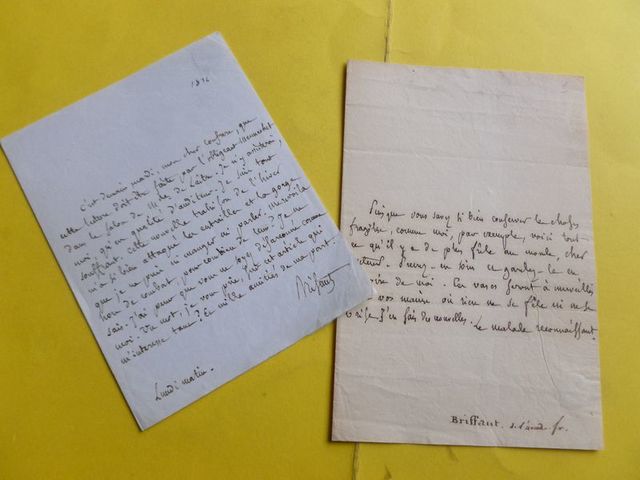 1836
C'est demain mardi, mon cher confrère, que
cette lecture doit être faite par l'obligeant Mennechet
dans le salon du M. de Laite. Je n'y assisterai,
moi, qu'en qualité d'auditeur. Je suis tout
souffrant. Cette nouvelle trahison de l'hiver
m'a si bien attaqué les entrailles et la gorge
que je ne puis ni manger ni parler. Me voilà
hors de combat, pour combien de tems? Je ne
sais. J'ai peur que vous ne soyez désarçonné comme
moi. Un mot, je vous prie, sur cet article qui
m'intéresse tant. Et mille amitiés de ma part.
Briffaut
Lundi matin.
Puisque vous savez si bien conserver les choses
fragiles, comme moi, par exemple, voici tout
ce qu'il y a de plus fêlé au monde, cher
docteur. Prenez-en bien et gardez-le en
mémoire de moi. Ces vases seront à merveilles
vos mains où rien ne se fêle ni ne se
brise. J'en fais des nouvelles. Le malade reconnaissant.
Briffaut. de l'acad. fr.